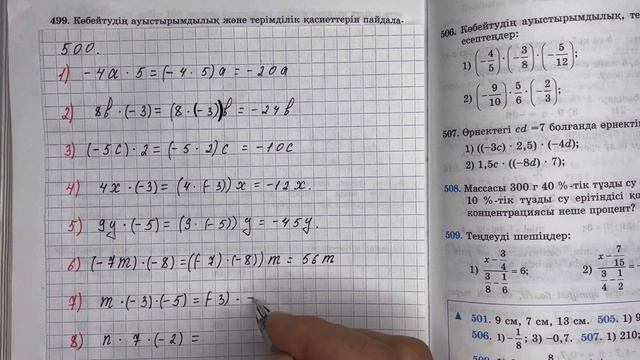 499. Көбейтудің ауыстырымдылық және терімділік қасиеттерін пайдала-
500.
1) -4a · 5 = (-4 · 5) a = -20a
2) 8b · (-3) = (8 · (-3)) b = -24b
3) (-5c) · 2 = (-5 · 2) c = -10c
4) 4x · (-3) = (4 · (-3)) x = -12x.
5) 9y · (-5) = (9 · (-5)) y = -45y.
6) (-7m) · (-8) = ((-7) · (-8)) m = 56m
7) m · (-3) · (-5) = (-3) · -
8) n · 7 · (-2) =
506. Көбейтудің ауыстырымдылық, те
есептеңдер:
1) (-4/5) · (-3/8) · (-5/12);
2) (-9/10) · 5/6 · (-2/3);
507. Өрнектегі cd = 7 болғанда өрнекті
1) ((-3c) · 2,5) · (-4d);
2) 1,5c · ((-8d) · 7);
508. Массасы 300 г 40 %-тік тұзды су
10 %-тік тұзды су ерітіндісі қо
концентрациясы неше процент?
509. Теңдеуді шешіңдер:
1) (x - 3/4)/(3/8 - 1/6) = 6; 2) (x - 7/15)/(3/4 - 1/2)
501. 9 см, 7 см, 13 см. 505. 1) 9
506. 1) -1/8; 3) -0,7. 507. 1) 210;